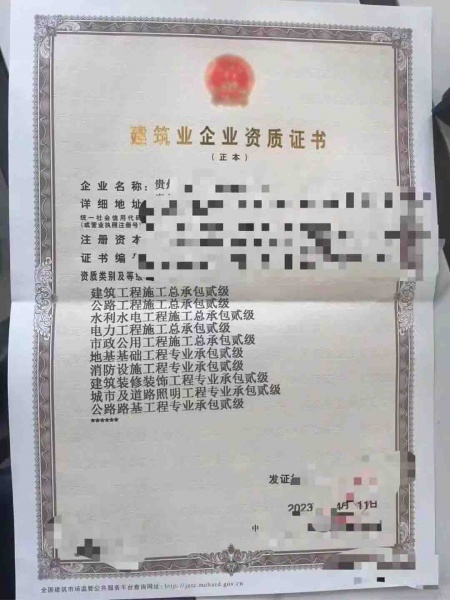 建筑业企业资质证书
(正本)
企业名称:贵
详细地址
统一社会信用代码
(或营业执照注册号)
注册资本
证书编
资质类别及等
建筑工程施工总承包贰级
公路工程施工总承包贰级
水利水电工程施工总承包贰级
电力工程施工总承包贰级
市政公用工程施工总承包贰级
地基基础工程专业承包贰级
消防设施工程专业承包贰级
建筑装修装饰工程专业承包贰级
城市及道路照明工程专业承包贰级
公路路基工程专业承包贰级
******
发证
2023 月11日
中
全国建筑市场监管公共服务平台查询网址: http://jzsc.mohurd.gov.cn